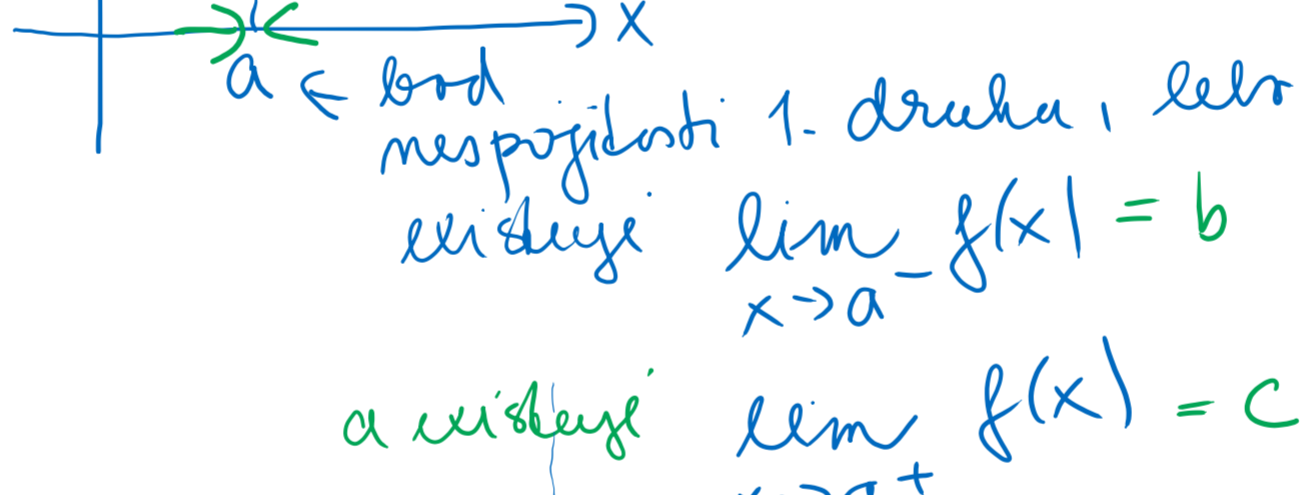 x
a ← bod
nespojitosti 1. druhu, lebo
existuje lim f(x) = b
x→a⁻
a existuje lim f(x) = c
x→a⁺